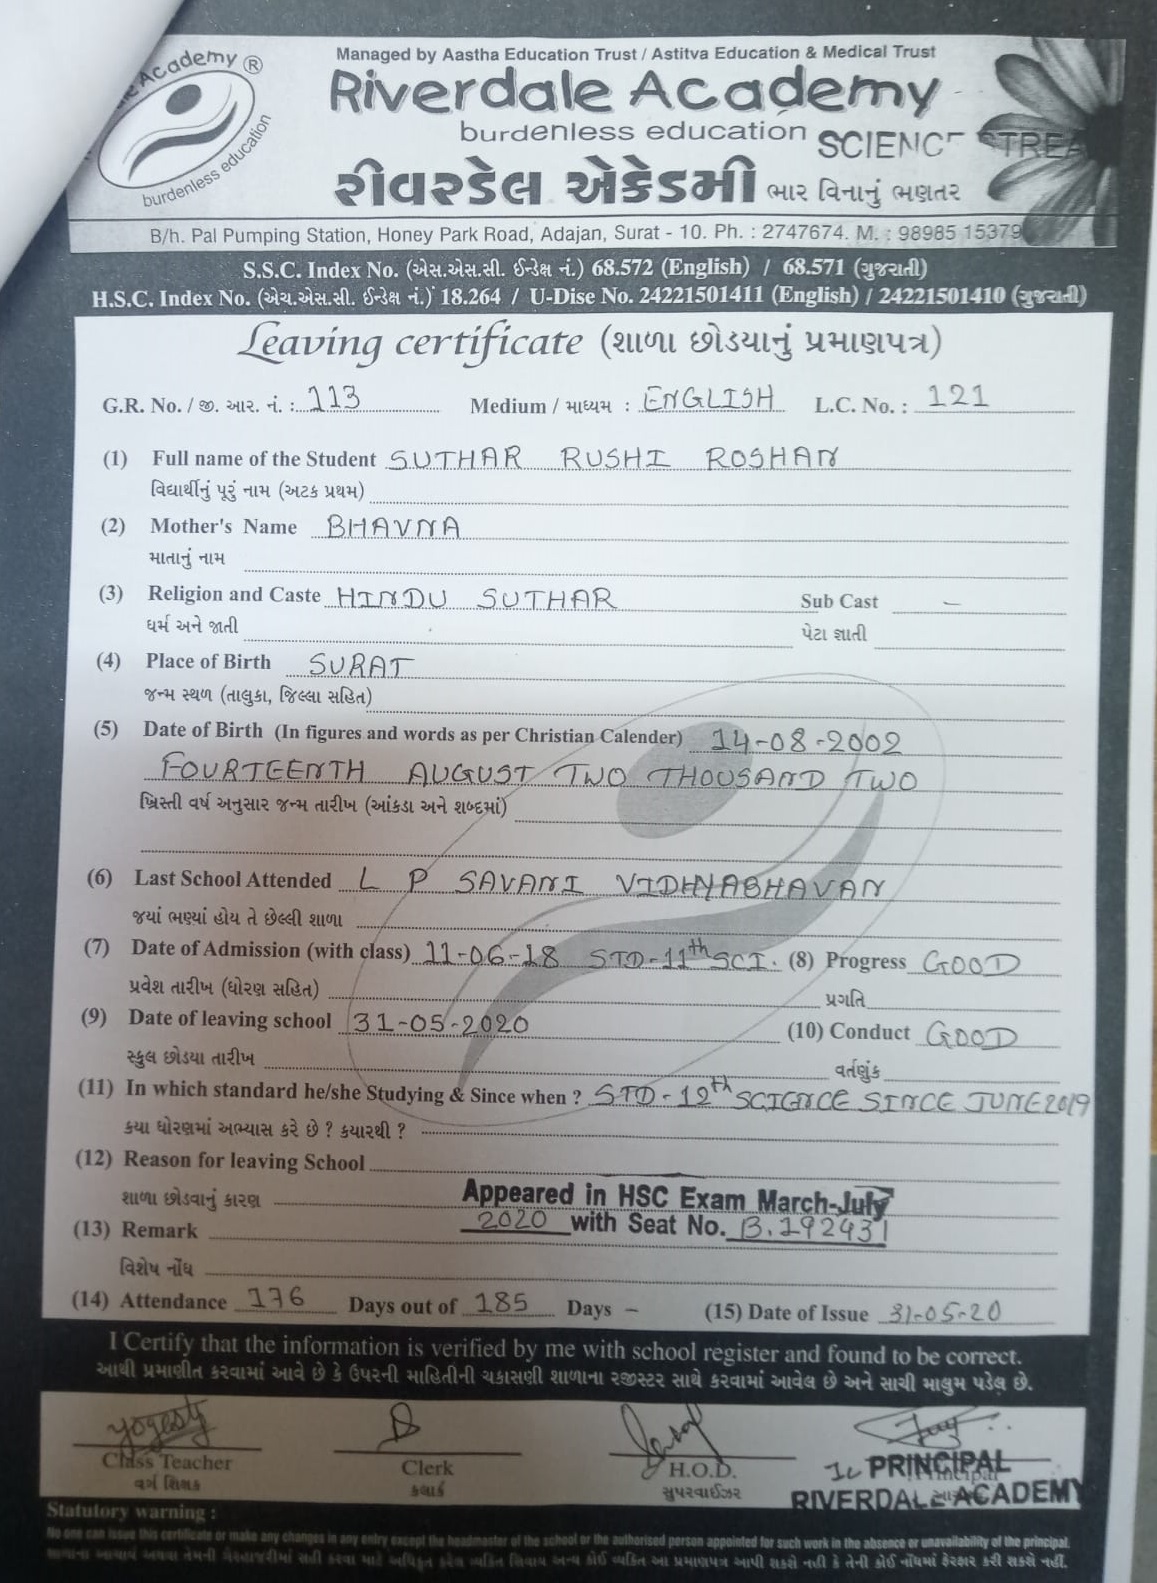 Academy ®
burdenless education
Managed by Aastha Education Trust / Astitva Education & Medical Trust
Riverdale Academy
burdenless education SCIENC STREA
રીવરડેલ એકેડમી ભાર વિનાનું ભણતર
B/h. Pal Pumping Station, Honey Park Road, Adajan, Surat - 10. Ph. : 2747674. M. : 98985 15379
S.S.C. Index No. (એસ.એસ.સી. ઈન્ડેક્ષ નં.) 68.572 (English) / 68.571 (ગુજરાતી)
H.S.C. Index No. (એચ.એસ.સી. ઈન્ડેક્ષ નં.) 18.264 / U-Dise No. 24221501411 (English) / 24221501410 (ગુજરાતી)
Leaving certificate (શાળા છોડયાનું પ્રમાણપત્ર)
G.R. No. / જી. આર. નં. : 113 Medium / માધ્યમ : ENGLISH L.C. No. : 121
(1) Full name of the Student SUTHAR RUSHI ROSHAN
વિદ્યાર્થીનું પૂરું નામ (અટક પ્રથમ)
(2) Mother's Name BHAVNA
માતાનું નામ
(3) Religion and Caste HINDU SUTHAR Sub Cast -
ધર્મ અને જાતી પેટા જ્ઞાતી
(4) Place of Birth SURAT
જન્મ સ્થળ (તાલુકા, જિલ્લા સહિત)
(5) Date of Birth (In figures and words as per Christian Calender) 14-08-2002
FOURTEENTH AUGUST TWO THOUSAND TWO
ખ્રિસ્તી વર્ષ અનુસાર જન્મ તારીખ (આંકડા અને શબ્દમાં)
(6) Last School Attended L P SAVANI VIDHYABHAVAN
જયાં ભણ્યાં હોય તે છેલ્લી શાળા
(7) Date of Admission (with class) 11-06-18 STD-11th SCI. (8) Progress GOOD
પ્રવેશ તારીખ (ધોરણ સહિત) પ્રગતિ
(9) Date of leaving school 31-05-2020 (10) Conduct GOOD
સ્કુલ છોડયા તારીખ વર્તણુંક
(11) In which standard he/she Studying & Since when ? STD-12th SCIENCE SINCE JUNE 2019
કયા ધોરણમાં અભ્યાસ કરે છે ? કયારથી ?
(12) Reason for leaving School
શાળા છોડવાનું કારણ Appeared in HSC Exam March-July
(13) Remark 2020 with Seat No. B.192431
વિશેષ નોંધ
(14) Attendance 176 Days out of 185 Days - (15) Date of Issue 31-05-20
I Certify that the information is verified by me with school register and found to be correct.
આથી પ્રમાણીત કરવામાં આવે છે કે ઉપરની માહિતીની ચકાસણી શાળાના રજીસ્ટર સાથે કરવામાં આવેલ છે અને સાચી માલુમ પડેલ છે.
Class Teacher Clerk H.O.D. Ic PRINCIPAL
વર્ગ શિક્ષક કલાર્ક સુપરવાઈઝર RIVERDALE ACADEMY
Statutory warning :
No one can issue this certificate or make any changes in any entry except the headmaster of the school or the authorised person appointed for such work in the absence or unavailability of the principal.